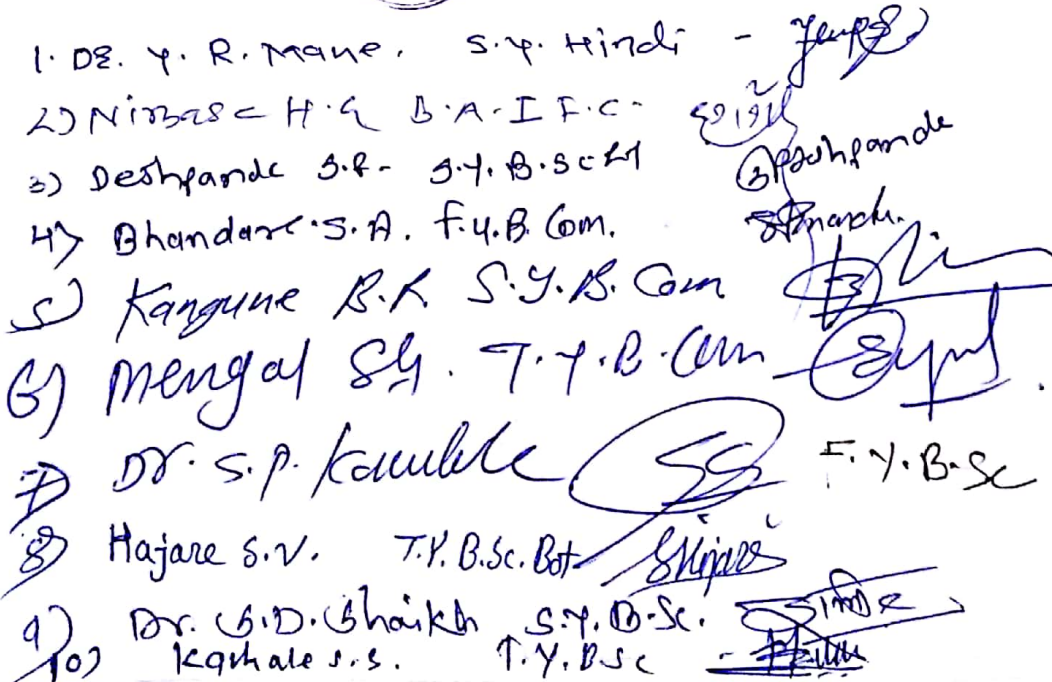 1. Dr. Y. R. Mane. S.Y. Hindi -
2) H.G B.A. I F.C.
3) Deshpande S.R. S.Y. B.Sc Deshpande
4) Bhandare S.A. F.Y.B. Com.
5) Kangune B.R. S.Y.B. Com
6) Mengal SG. T.Y.B.Com
7) Dr. S.P. Kamble SS F.Y.B.Sc
8) Hajare S.V. T.Y. B.Sc. Bot
9) Dr. S.D. Shaikh S.Y. B.Sc.
10) Karhale S.S. T.Y. BSc